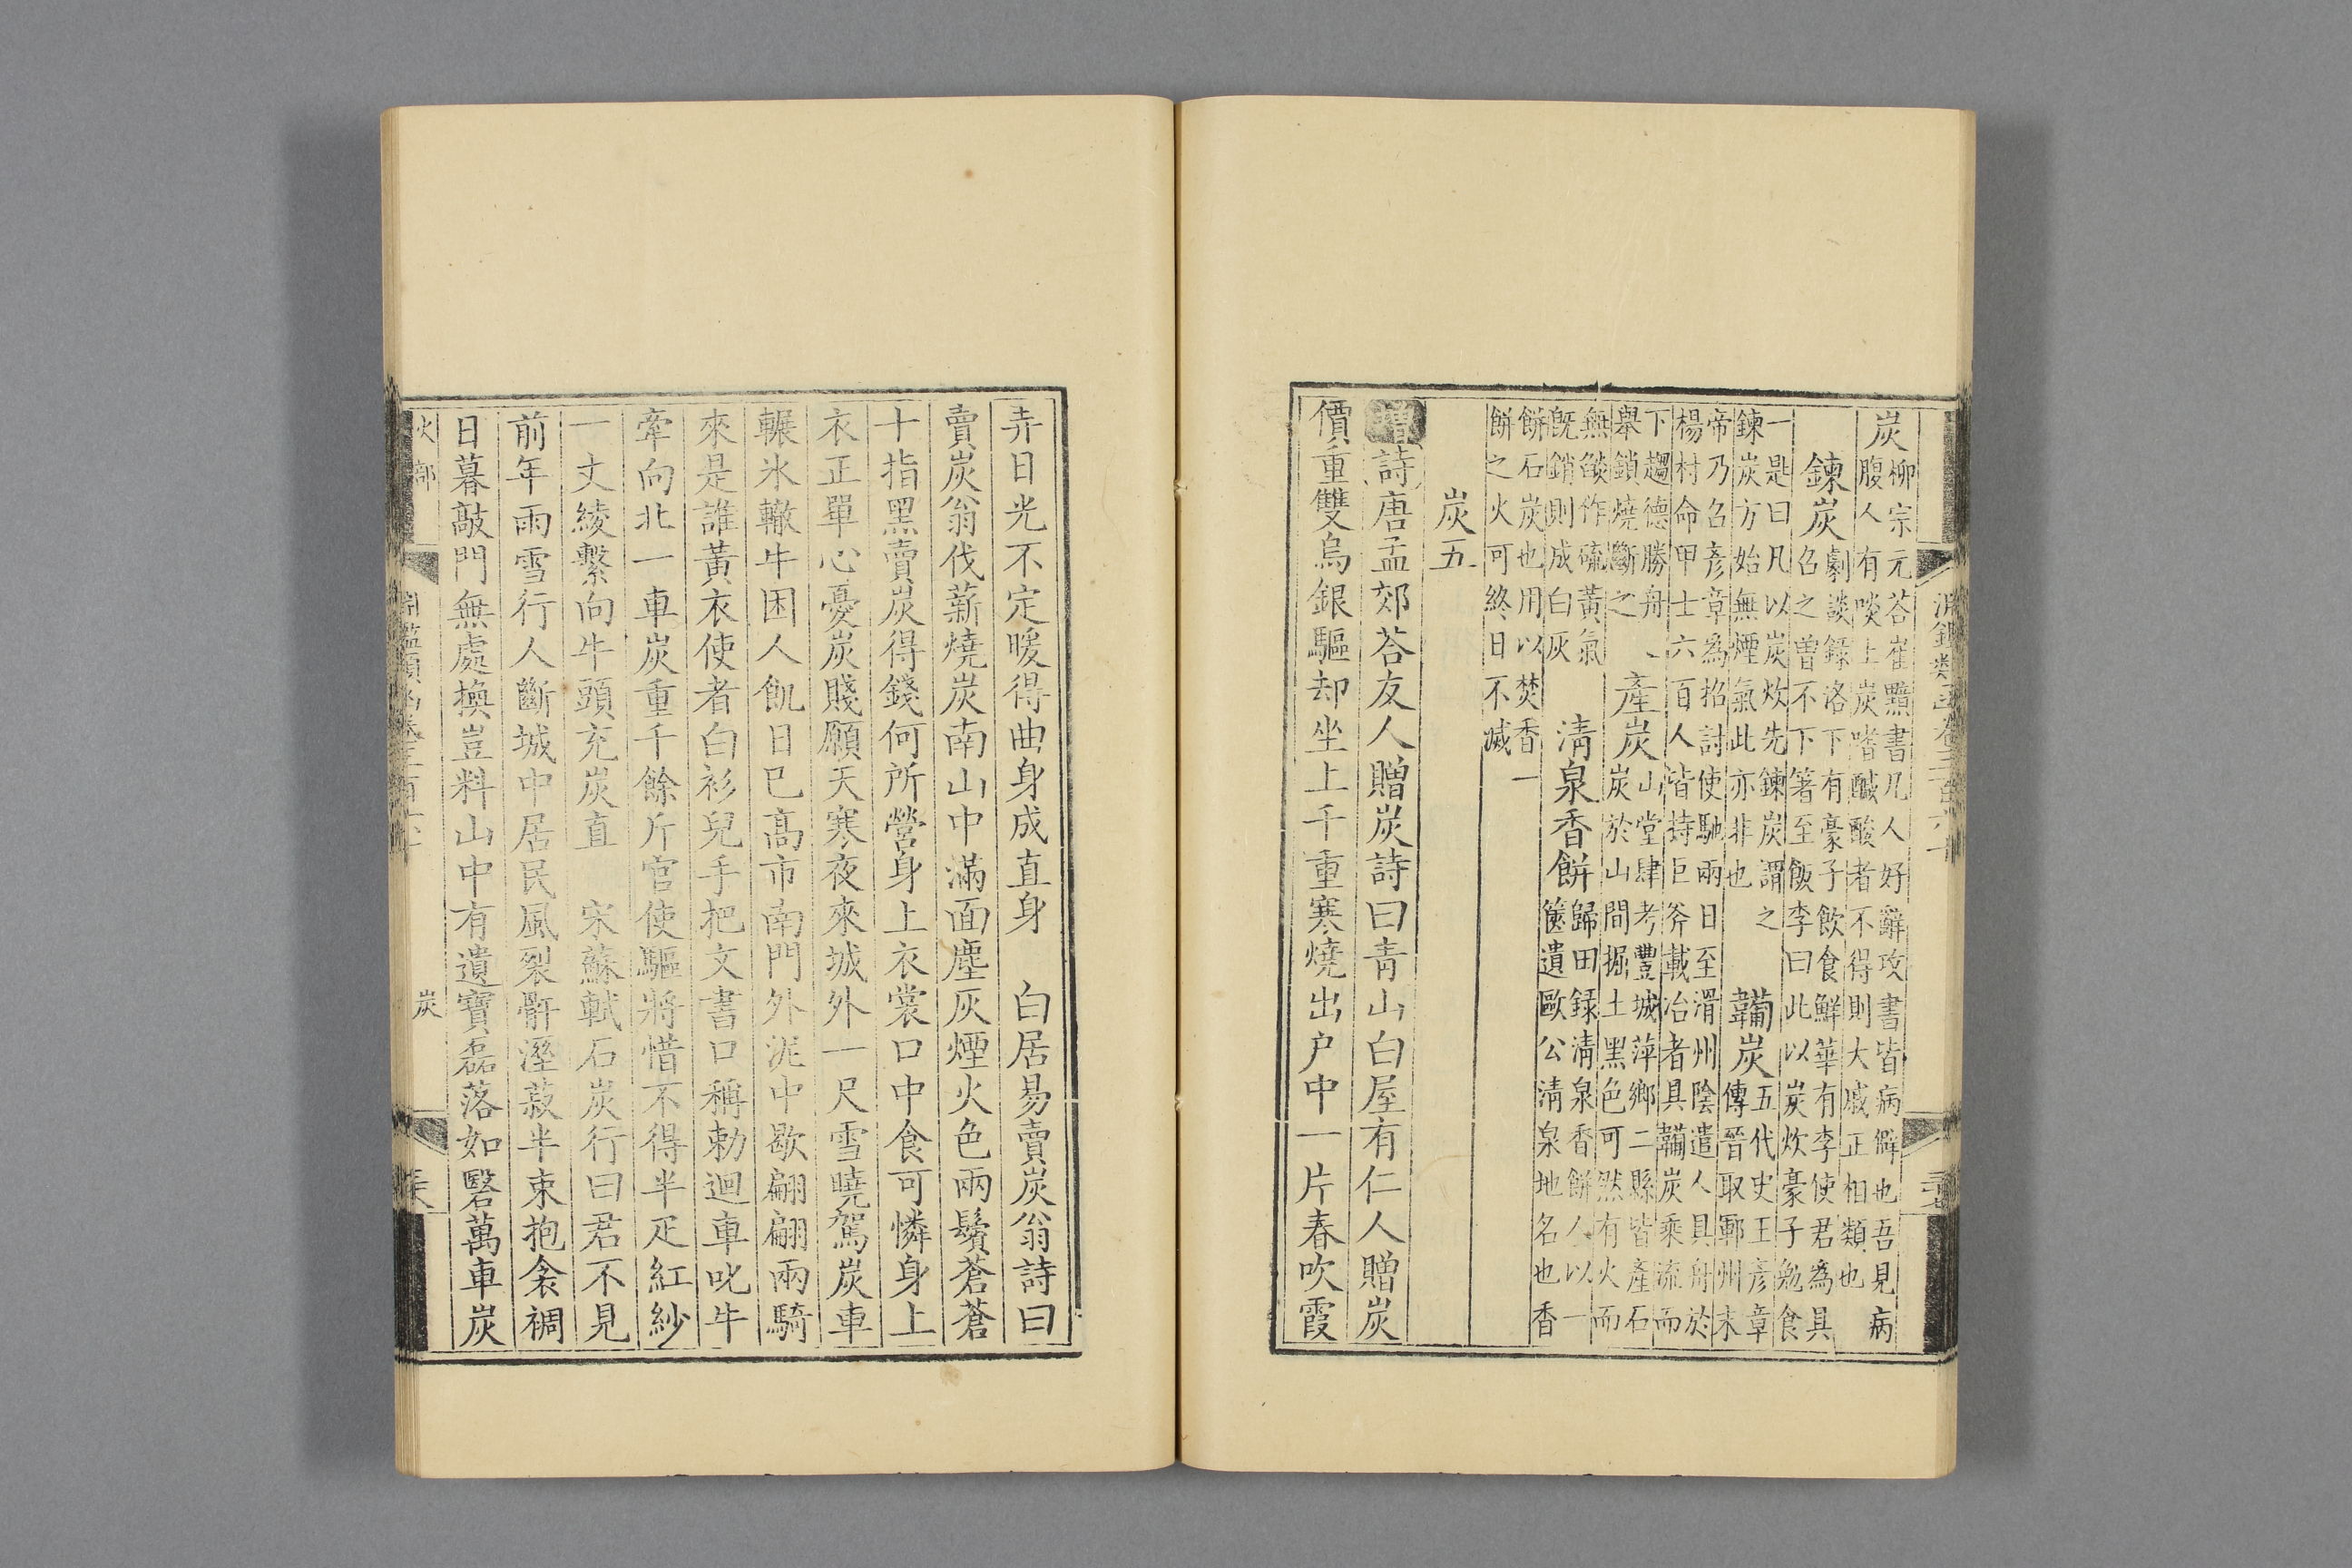 淵鑑類函卷三百六十
炭柳宗元荅崔黯書凡人好辭攻書皆病癖也吾見病
腹人有啖土炭嗜醎酸者不得則大戚正相類也
鍊炭劇談録洛下有豪子飲食鮮華有李使君為具
召之曽不下箸至飯李曰此以炭炊豪子勉食
一匙曰凡以炭炊先鍊炭謂之
鍊炭方始無煙氣此亦非也
韛炭五代史王彦章
傳晉取鄆州末
帝乃召彦章為招討使馳兩日至滑州陰遣人具舟於
楊村命甲士六百人皆持巨斧載冶者具韛炭乘流而
下趨德勝舟
舉鎖燒斷之
產炭山堂肆考豐城萍鄉二縣皆產石
炭於山間掘土黑色可然有火而
無燄作硫黃氣
旣銷則成白灰
清泉香餅歸田録清泉香餅人以一
篋遺歐公清泉地名也香
餅石炭也用以焚香一
餅之火可終日不滅
炭五
增詩唐孟郊荅友人贈炭詩曰青山白屋有仁人贈炭
價重雙烏銀驅却坐上千重寒燒出户中一片春吹霞
弄日光不定暖得曲身成直身 白居易賣炭翁詩曰
賣炭翁伐薪燒炭南山中滿面塵灰煙火色兩鬢蒼蒼
十指黑賣炭得錢何所營身上衣裳口中食可憐身上
衣正單心憂炭賤願天寒夜來城外一尺雪曉駕炭車
輾氷轍牛困人飢日已高市南門外泥中歇翩翩兩騎
來是誰黃衣使者白衫兒手把文書口稱勅迴車叱牛
牽向北一車炭重千餘斤官使驅將惜不得半疋紅紗
一丈綾繫向牛頭充炭直 宋蘇軾石炭行曰君不見
前年雨雪行人斷城中居民風裂骭溼薪半束抱衾裯
日暮敲門無處換豈料山中有遺寶磊落如磐萬車炭
火部 淵鑑類函卷三百六十 炭